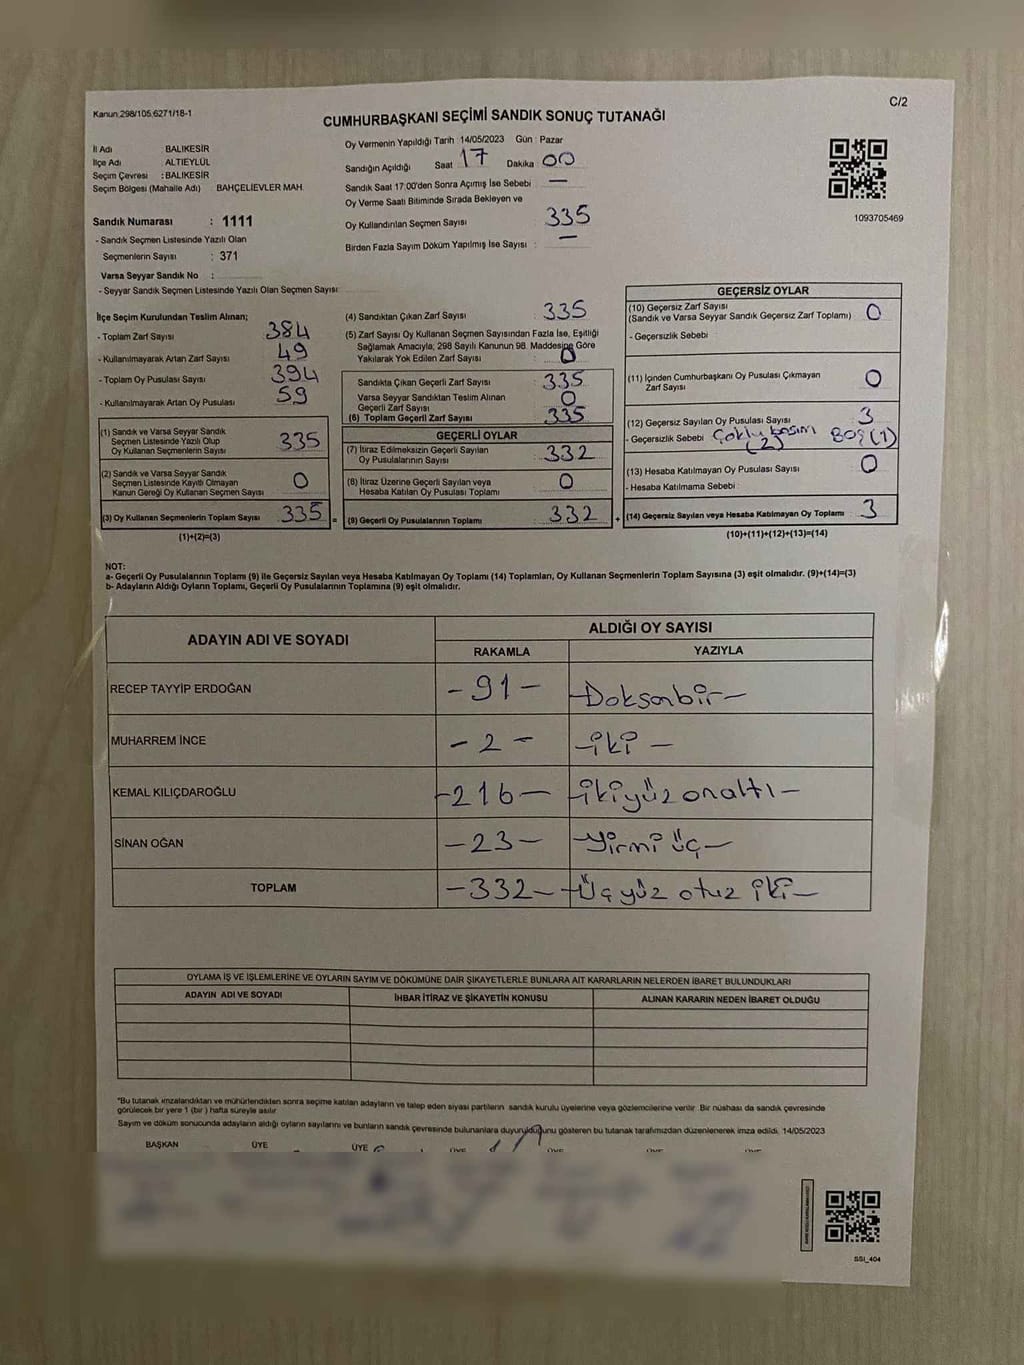 C/2
Kanun:298/105;6271/18-1
CUMHURBAŞKANI SEÇİMİ SANDIK SONUÇ TUTANAĞI
İl Adı : BALIKESİR
İlçe Adı : ALTIEYLÜL
Seçim Çevresi : BALIKESİR
Seçim Bölgesi (Mahalle Adı) BAHÇELİEVLER MAH.
Sandık Numarası : 1111
- Sandık Seçmen Listesinde Yazılı Olan
Seçmenlerin Sayısı : 371
Varsa Seyyar Sandık No :
- Seyyar Sandık Seçmen Listesinde Yazılı Olan Seçmen Sayısı:
Oy Vermenin Yapıldığı Tarih :14/05/2023 Gün : Pazar
Sandığın Açıldığı Saat 17 Dakika 00
Sandık Saat 17:00'den Sonra Açımış İse Sebebi : —
Oy Verme Saati Bitiminde Sırada Bekleyen ve
Oy Kullandırılan Seçmen Sayısı : 335
Birden Fazla Sayım Döküm Yapılmış İse Sayısı : —
1093705469
İlçe Seçim Kurulundan Teslim Alınan;
- Toplam Zarf Sayısı : 384
- Kullanılmayarak Artan Zarf Sayısı : 49
- Toplam Oy Pusulası Sayısı : 394
- Kullanılmayarak Artan Oy Pusulası : 59
(1) Sandık ve Varsa Seyyar Sandık
Seçmen Listesinde Yazılı Olup
Oy Kullanan Seçmenlerin Sayısı : 335
(2) Sandık ve Varsa Seyyar Sandık
Seçmen Listesinde Kayıtlı Olmayan
Kanun Gereği Oy Kullanan Seçmen Sayısı : 0
(3) Oy Kullanan Seçmenlerin Toplam Sayısı : 335 =
(1)+(2)=(3)
(4) Sandıktan Çıkan Zarf Sayısı : 335
(5) Zarf Sayısı Oy Kullanan Seçmen Sayısından Fazla İse, Eşitliği
Sağlamak Amacıyla; 298 Sayılı Kanunun 98. Maddesine Göre
Yakılarak Yok Edilen Zarf Sayısı : 0
Sandıkta Çıkan Geçerli Zarf Sayısı : 335
Varsa Seyyar Sandıktan Teslim Alınan
Geçerli Zarf Sayısı : 0
(6) Toplam Geçerli Zarf Sayısı : 335
GEÇERLİ OYLAR
(7) İtiraz Edilmeksizin Geçerli Sayılan
Oy Pusulalarının Sayısı : 332
(8) İtiraz Üzerine Geçerli Sayılan veya
Hesaba Katılan Oy Pusulası Toplamı : 0
(9) Geçerli Oy Pusulalarının Toplamı : 332 +
GEÇERSİZ OYLAR
(10) Geçersiz Zarf Sayısı
(Sandık ve Varsa Seyyar Sandık Geçersiz Zarf Toplamı) : 0
- Geçersizlik Sebebi :
(11) İçinden Cumhurbaşkanı Oy Pusulası Çıkmayan
Zarf Sayısı : 0
(12) Geçersiz Sayılan Oy Pusulası Sayısı : 3
- Geçersizlik Sebebi : Çoklu basım (2) Boş (1)
(13) Hesaba Katılmayan Oy Pusulası Sayısı : 0
- Hesaba Katılmama Sebebi :
(14) Geçersiz Sayılan veya Hesaba Katılmayan Oy Toplamı : 3
(10)+(11)+(12)+(13)=(14)
NOT:
a- Geçerli Oy Pusulalarının Toplamı (9) ile Geçersiz Sayılan veya Hesaba Katılmayan Oy Toplamı (14) Toplamları, Oy Kullanan Seçmenlerin Toplam Sayısına (3) eşit olmalıdır. (9)+(14)=(3)
b- Adayların Aldığı Oyların Toplamı, Geçerli Oy Pusulalarının Toplamına (9) eşit olmalıdır.
ADAYIN ADI VE SOYADI
ALDIĞI OY SAYISI
RAKAMLA YAZIYLA
RECEP TAYYİP ERDOĞAN -91- -Doksanbir-
MUHARREM İNCE -2- -iki-
KEMAL KILIÇDAROĞLU -216- -ikiyüzonaltı-
SİNAN OĞAN -23- -Yirmi üç-
TOPLAM -332- -Üçyüz otuz iki-
OYLAMA İŞ VE İŞLEMLERİNE VE OYLARIN SAYIM VE DÖKÜMÜNE DAİR ŞİKAYETLERLE BUNLARA AİT KARARLARIN NELERDEN İBARET BULUNDUKLARI
ADAYIN ADI VE SOYADI İHBAR İTİRAZ VE ŞİKAYETİN KONUSU ALINAN KARARIN NEDEN İBARET OLDUĞU
*Bu tutanak imzalandıktan ve mühürlendikten sonra seçime katılan adayların ve talep eden siyasi partilerin sandık kurulu üyelerine veya gözlemcilerine verilir. Bir nüshası da sandık çevresinde
görülecek bir yere 1 (bir) hafta süreyle asılır.
Sayım ve döküm sonucunda adayların aldığı oyların sayılarını ve bunların sandık çevresinde bulunanlara duyurulduğunu gösteren bu tutanak tarafımızdan düzenlenerek imza edildi. 14/05/2023
BAŞKAN ÜYE ÜYE ÜYE ÜYE ÜYE ÜYE
SSI_404